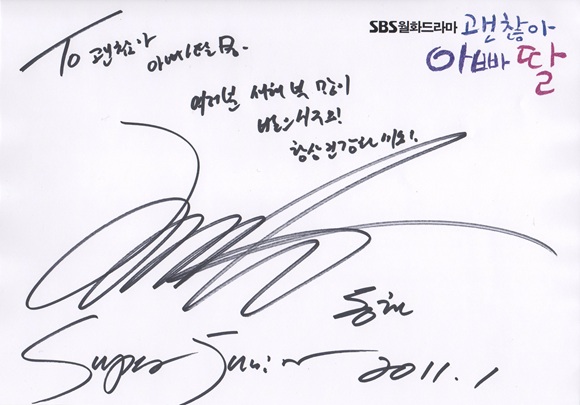 SBS월화드라마 괜찮아
아빠 딸
To 괜찮아
아빠딸 팀.
여러분 새해 복 많이
받으시구요!
항상 건강하세요!
동해
Super Junior
2011.1